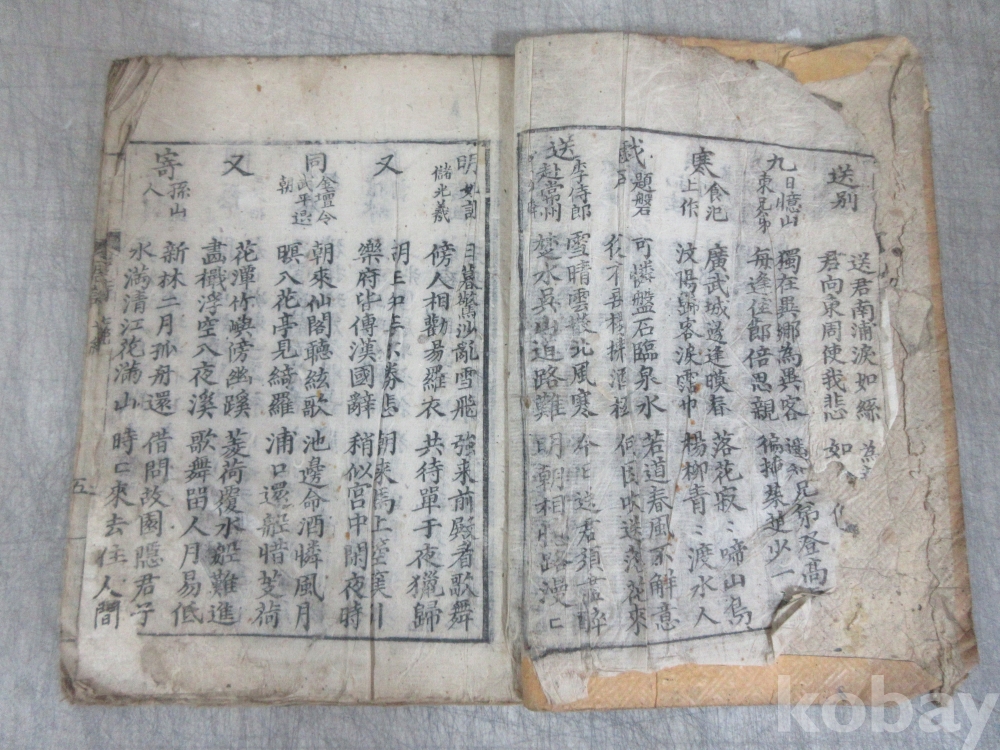 送別
送君南浦淚如絲
君向東周使我悲 如
九日憶山東兄弟
獨在異鄉為異客 兄弟登高
每逢佳節倍思親 徧揷茱萸少一
寒食汜上作
廣武城邊逢暮春 落花寂〻啼山鳥
汶陽歸客淚霑巾 楊柳青〻渡水人
戱題磐石
可憐盤石臨泉水 若道春風不解意
吹送落花來
送李侍郎赴常州
雪晴雲散北風寒 今日送君須盡醉
楚水吳山道路難 明朝相憶路漫〻
明妃詞
儲光羲
日暮驚沙亂雪飛 強來前殿看歌舞
傍人相勸易羅衣 共待單于夜獵歸
又
胡王知妾不勝悲 朝來馬上
樂府皆傳漢國辭 稍似宮中閑夜時
同金壇令武平退朝
朝來仙閣聽絃歌 池邊命酒憐風月
暝入花亭見綺羅 浦口還船惜芰荷
又
花潭竹嶼傍幽蹊 菱荷覆水船難進
畵檝浮空入夜溪 歌舞留人月易低
寄孫山人
新林二月孤舟還 借問故國隱君子
水滿清江花滿山 時〻來去住人間
五
kobay